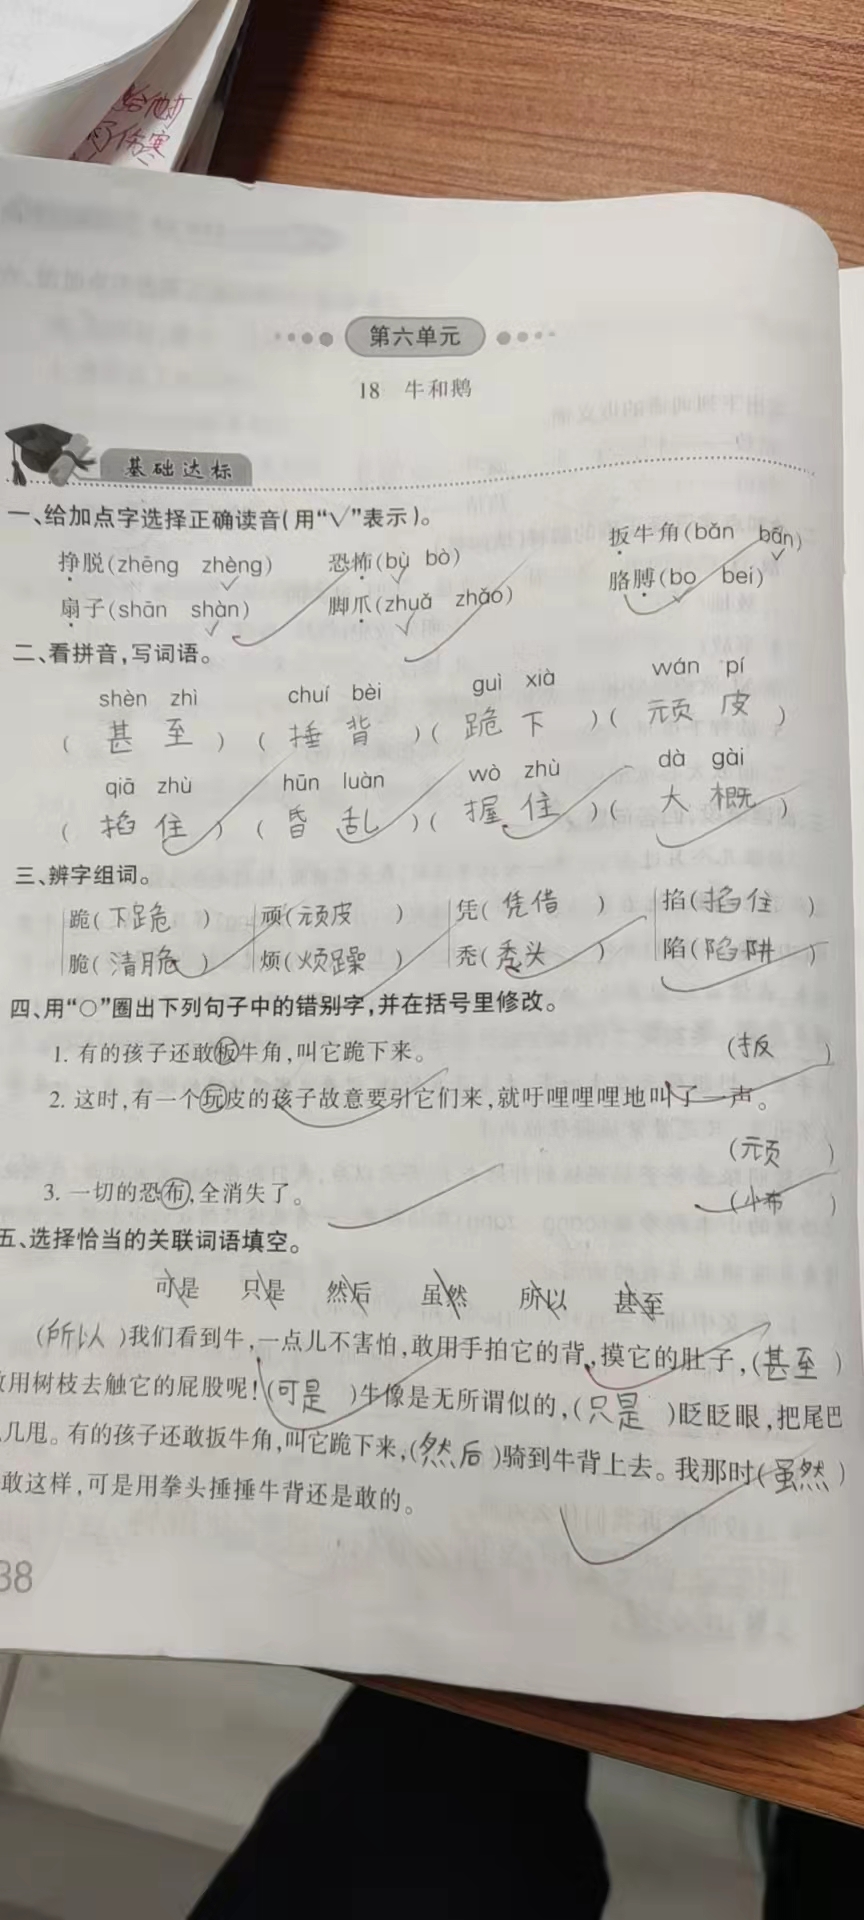 给他打
了伤寒
第六单元
18 牛和鹅
基础达标
一、给加点字选择正确读音(用“√”表示)。
挣脱(zhēng zhèng) 恐怖(bù bò) 扳牛角(bǎn bān)
扇子(shān shàn) 脚爪(zhuǎ zhǎo) 胳膊(bo bei)
二、看拼音,写词语。
shèn zhì chuí bèi guì xià wán pí
(甚至)(捶背)(跪下)(顽皮)
qiā zhù hūn luàn wò zhù dà gài
(掐住)(昏乱)(握住)(大概)
三、辨字组词。
跪(下跪) 顽(顽皮) 凭(凭借) 掐(掐住)
脆(清脆) 烦(烦躁) 秃(秃头) 陷(陷阱)
四、用“○”圈出下列句子中的错别字,并在括号里修改。
1. 有的孩子还敢板牛角,叫它跪下来。 (扳)
2. 这时,有一个玩皮的孩子故意要引它们来,就吁哩哩哩地叫了一声。
(顽)
3. 一切的恐布,全消失了。 (怖)
五、选择恰当的关联词语填空。
可是 只是 然后 虽然 所以 甚至
(所以)我们看到牛,一点儿不害怕,敢用手拍它的背,摸它的肚子,(甚至)
用树枝去触它的屁股呢!(可是)牛像是无所谓似的,(只是)眨眨眼,把尾巴
几甩。有的孩子还敢扳牛角,叫它跪下来,(然后)骑到牛背上去。我那时(虽然)
敢这样,可是用拳头捶捶牛背还是敢的。
38